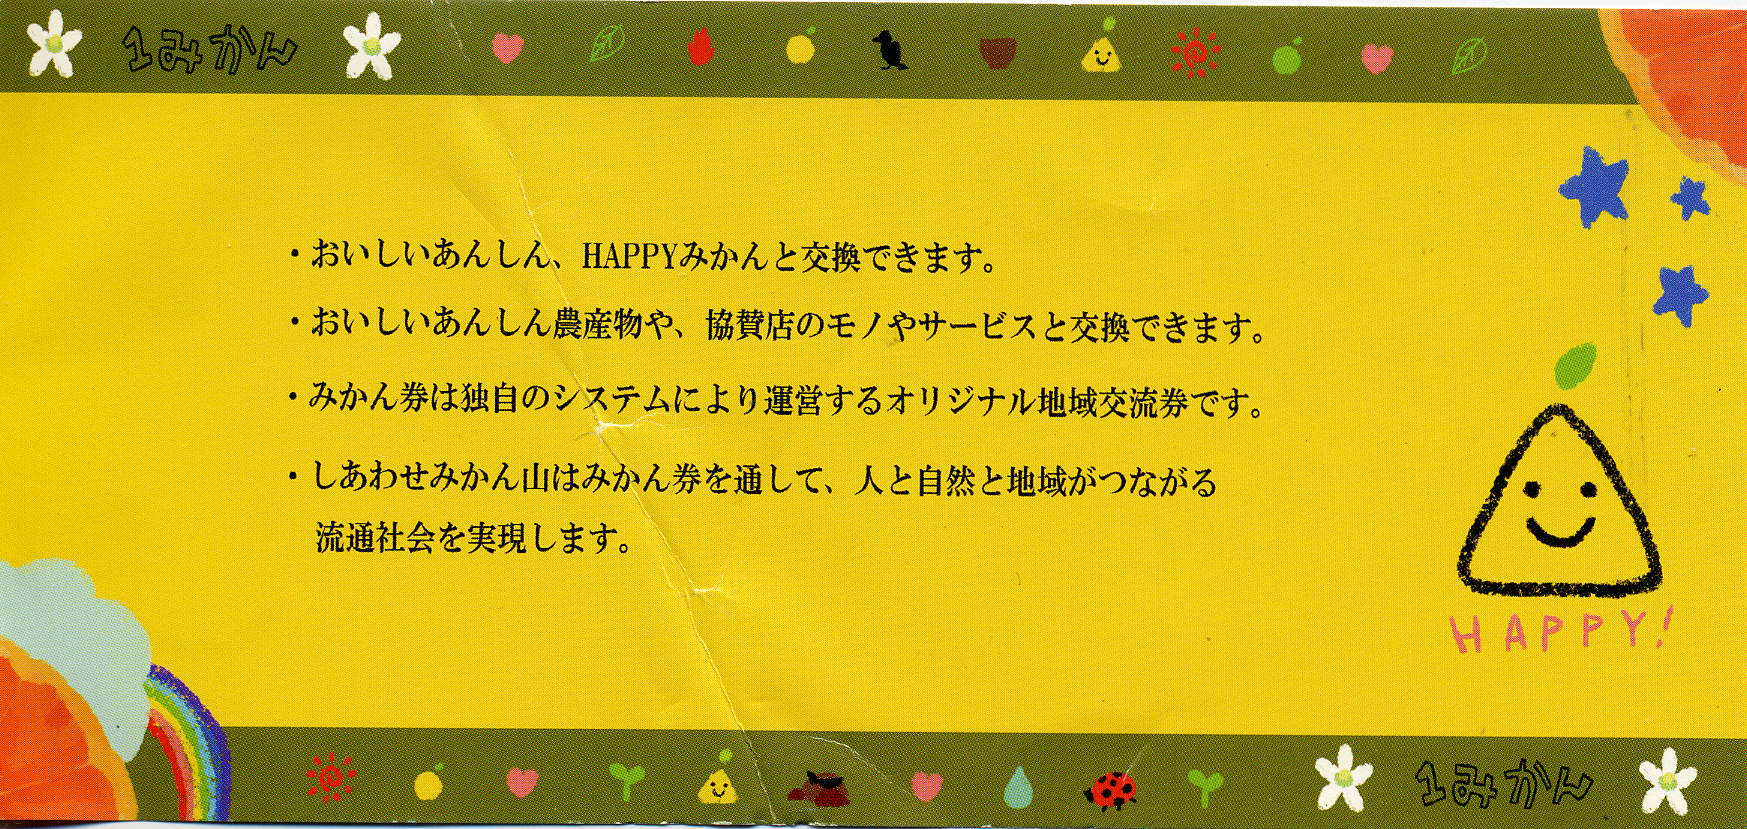 1みかん
・おいしいあんしん、HAPPYみかんと交換できます。
・おいしいあんしん農産物や、協賛店のモノやサービスと交換できます。
・みかん券は独自のシステムにより運営するオリジナル地域交流券です。
・しあわせみかん山はみかん券を通して、人と自然と地域がつながる
流通社会を実現します。
HAPPY!
1みかん